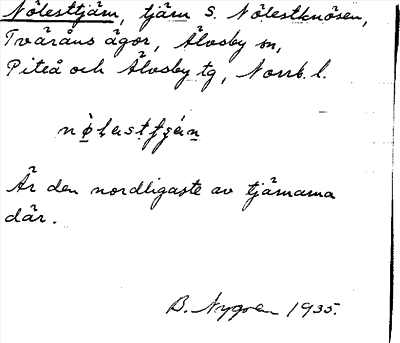 Nölesttjärn, tjärn S. Nölestknösen,
Tväråns ägor, Älvsby sn,
Piteå och Älvsby tg, Norrb. l.
Är den nordligaste av tjärnarna
där.
B. Nygren 1935.